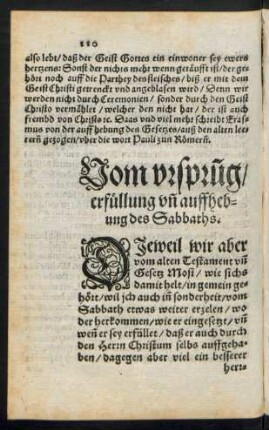 110
also lebt/ daß der Geist Gottes ein einwoner sey ewers
hertzens: Sonst der nichts mehr wenn getäufft ist/ der ge=
hört noch auff die Parthey des fleisches/ biß er mit dem
Geist Christi getrenckt vnd angeblasen wird/ Denn wir
werden nicht durch Ceremonien/ sonder durch den Geist
Christo vermählet/ welcher den nicht hat/ der ist auch
frembd von Christo ꝛc. Daas vnd viel mehr schreibt Eras=
mus von der auff hebung des Gesetzes/ auß den alten leh=
rern̄ gezogen/ vber die wort Pauli zun Römern̄.
Vom vrsprūg/
erfüllung vn̄ auffheb=
ung des Sabbaths.
DIeweil wir aber
vom alten Testament vn̄
Gesetz Mosi/ wie sichs
damit helt/ in gemein ge=
hört/ wil jch auch in̄ sonderheit/ vom
Sabbath etwas weiter erzelen/ wo
der herkommen/ wie er eingesetzt/ vn̄
wen̄ er sey erfüllet/ daß er auch durch
den Herrn Christum selbs auffgeha=
ben/ dagegen aber viel ein besserer
herr=